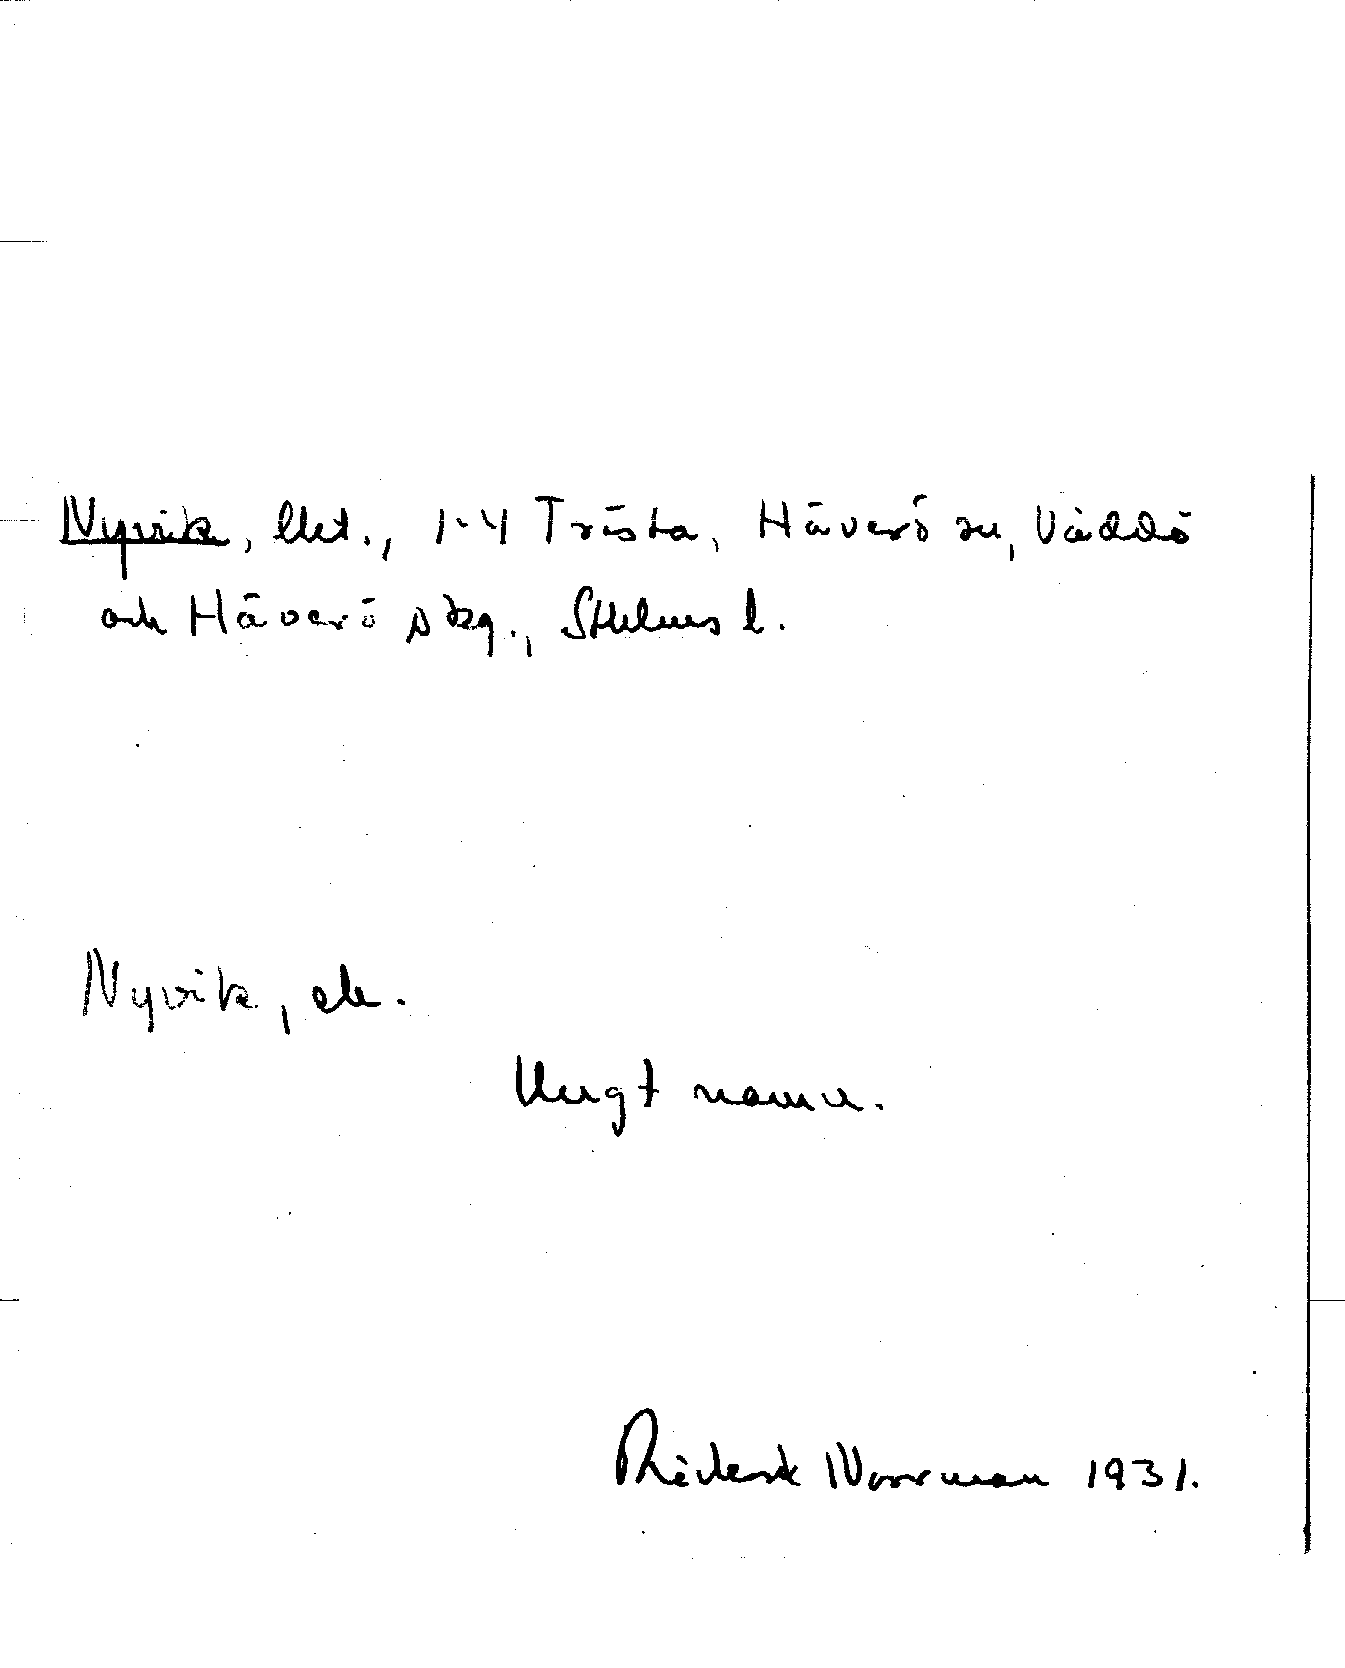 Nyvik, lht., 1-4 Trästa, Häverö sn, Väddö
och Häverö skg., Sthlms l.
Nyvik, ek.
Ungt namn.
Rickard Norrman 1931.